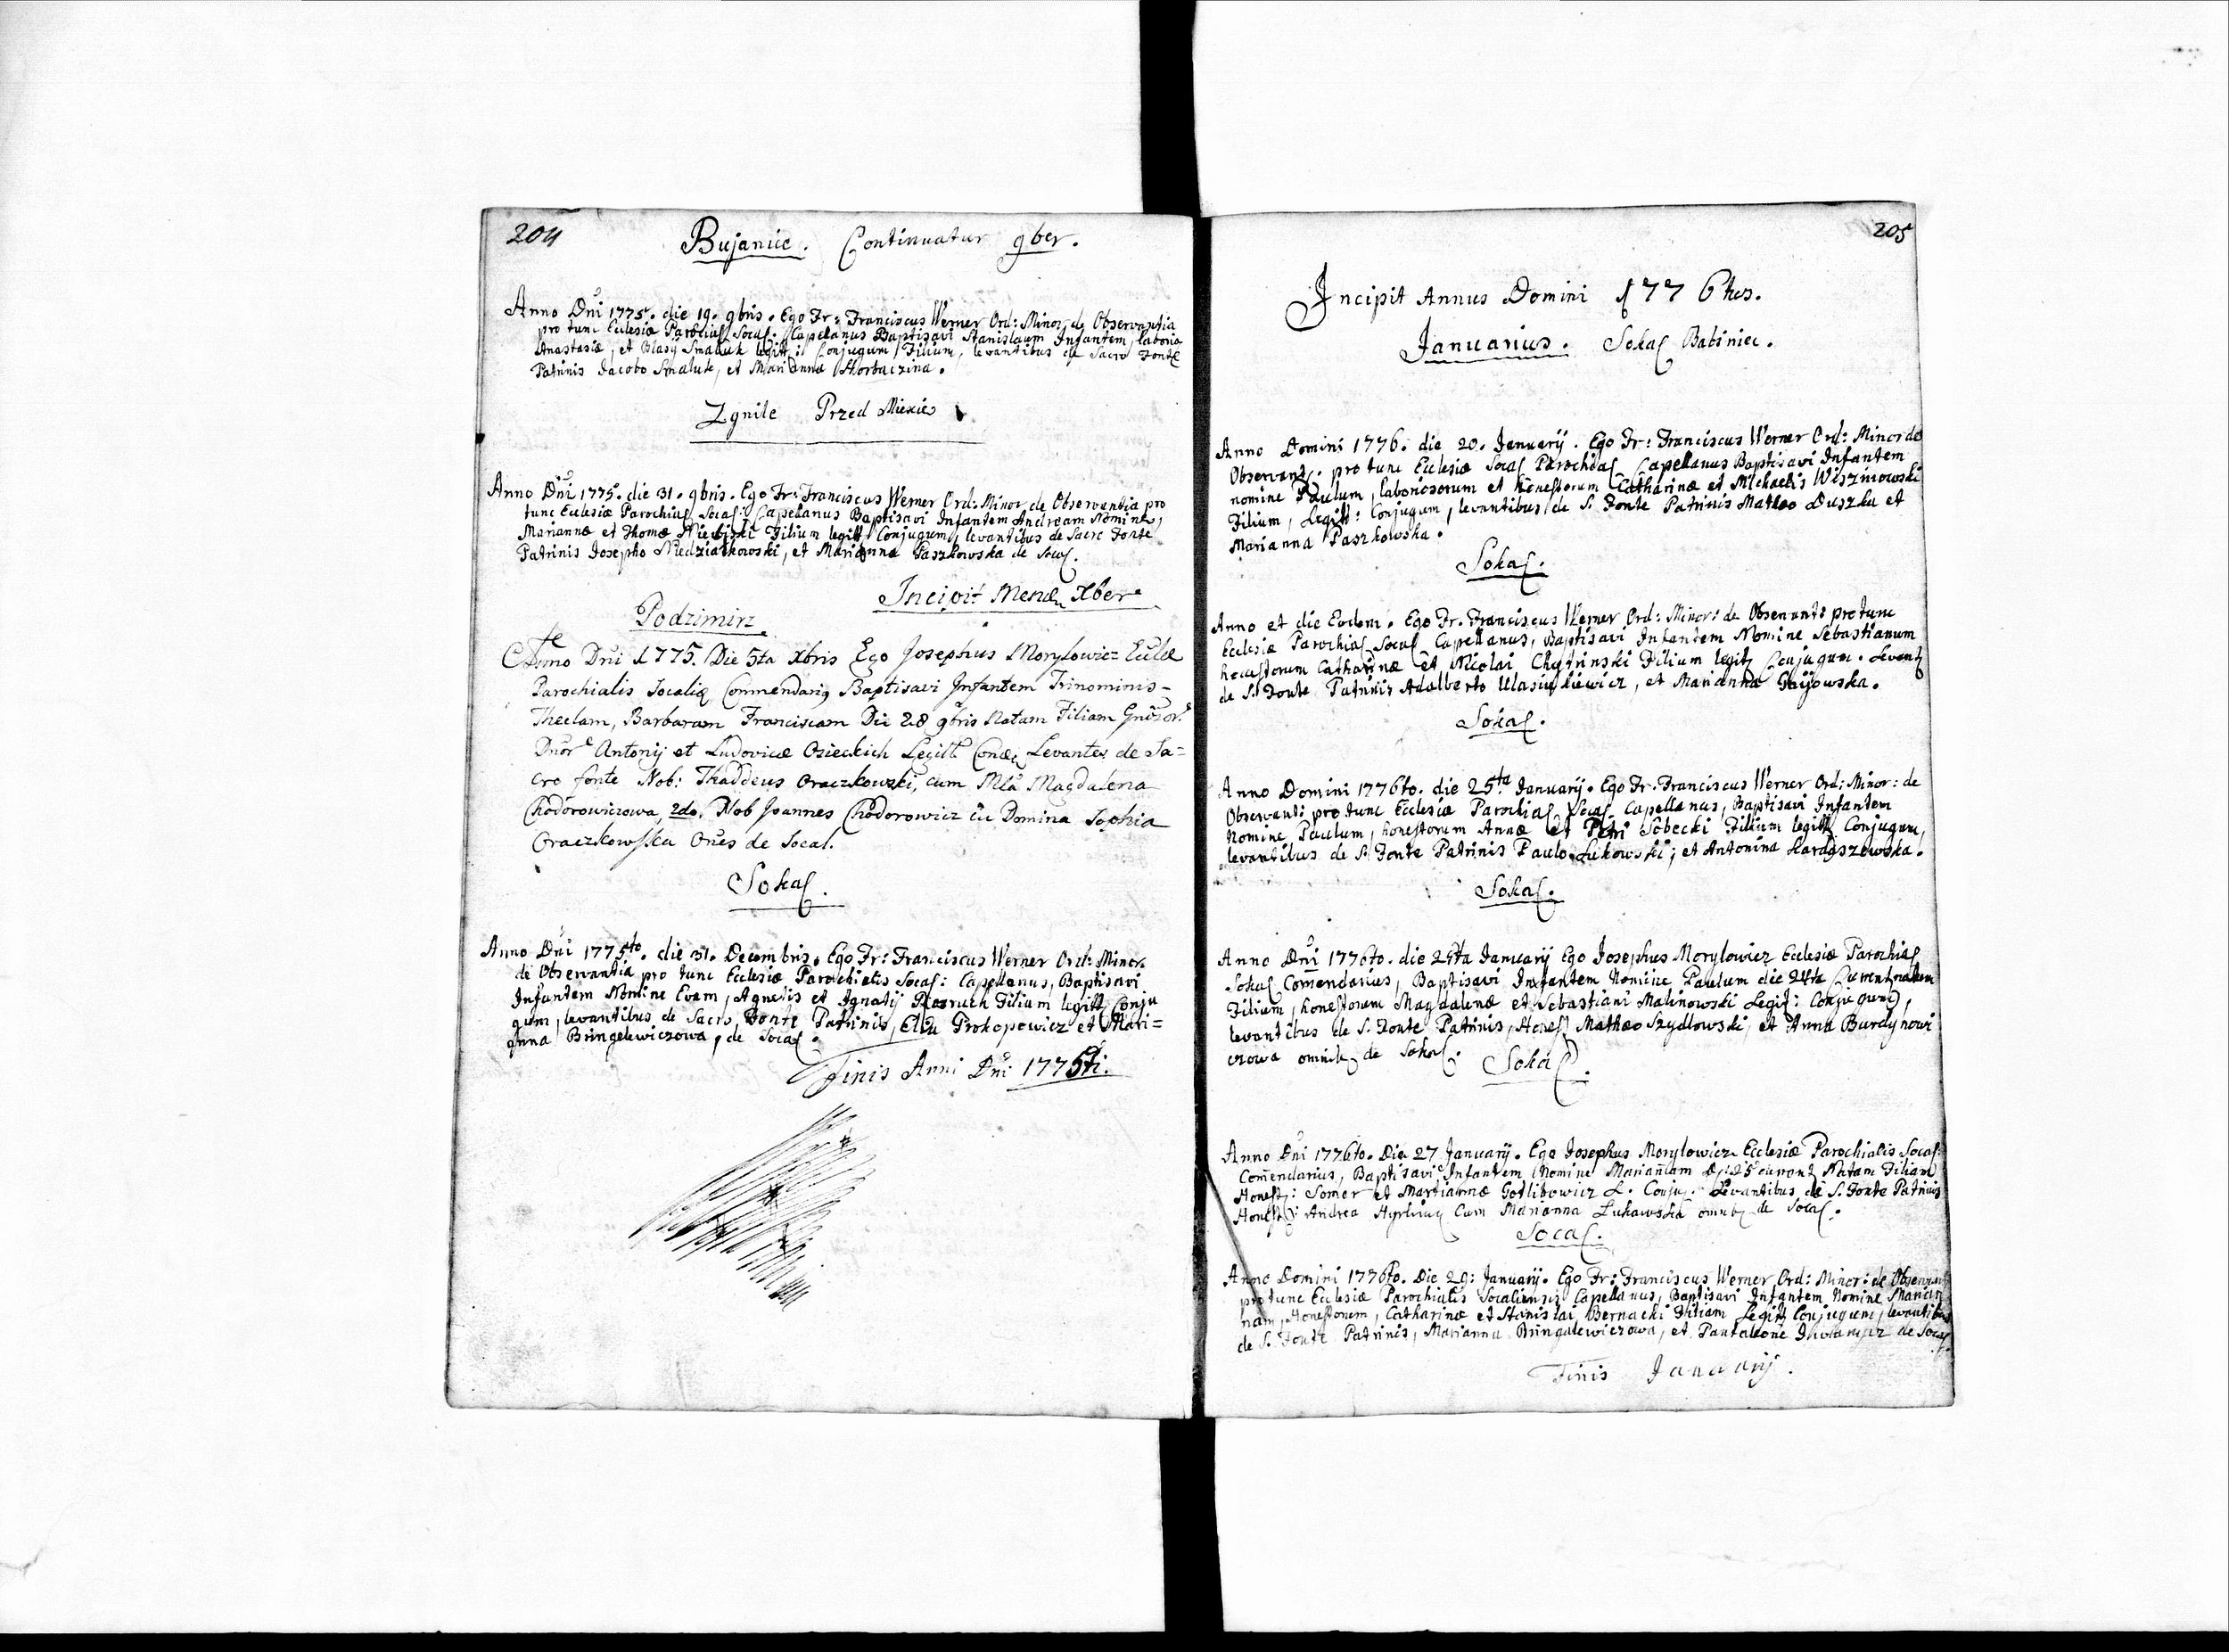 204
Bujanice. Continuatur 9ber.
Anno Dni 1775. die 19. 9bris. Ego Fr: Franciscus Werner Ord: Minor. de Observantia
pro tunc Eclesiæ Parochial Socal. Capellanus Baptisavi Stanislaum Infantem, laborio
Anastasiæ, et Blasij Smaluk legitt: Conjugum Filium, levantibus de Sacro Fonte
Patrinis Jacobo Smaluk, et Marianna Skorbaczina.
Zgnile Przed Miescie
Anno Dni 1775. die 31. 9bris. Ego Fr: Franciscus Werner Ord: Minor. de Observantia pro
tunc Eclesiæ Parochial Socal: Capellanus Baptisavi Infantem Andream Nomine,
Mariannæ et Thomæ Filium legitt Conjugum, levantibus de Sacro Fonte
Patrinis Josepho Niedzialkowski, et Marianna Paszkowska de Socal.
Incipit Mensis Xber
Podzimirz
Anno Dni 1775. Die 5ta Xbris Ego Josephus Morylowicz Eccle
Parochialis Socalię Commendarię Baptisavi Infantem Trinominis-
Theclam, Barbaram Franciscam Die 28 9bris Natam Filiam
Dnor Antonij et Ludovicæ Osieckich Legitt Levantes de Sa=
cro fonte Nob: Thaddeus Oraczkowski, cum Magdalena
Chodorowiczowa, 2do. Nob Joannes Chodorowicz cu Domina Sophia
Oraczkowska Ones de Socal.
Sokal.
Anno Dni 1775to. die 31. Decembris. Ego Fr: Franciscus Werner Ord: Minor.
de Observantia pro tunc Ecclesiæ Parochialis Socal: Capellanus, Baptisavi
Infantem Nomine Evam, Agnetis et Ignatij Filium legitt Conju
gum, levantibus de Sacro Fonte Patrinis, Elia Prokopowicz et Mari=
anna Bringelewiczowa, de Socal.
Finis Anni Dni 1775ti.
205
Incipit Annus Domini 1776tus.
Januarius. Sokal Babiniec.
Anno Domini 1776. die 20. Januarij. Ego Fr: Franciscus Werner Ord: Minor de
Observant. pro tunc Eclesiæ Socal Parochial Capellanus Baptisavi Infantem
nomine Paulum, laboriosorum et honestorum Catharinæ et Michaelis Wiszniowski
Filium, Legitt: Conjugum, levantibus de S. Fonte Patrinis Matheo Duszka et
Marianna Paszkowska.
Sokal.
Anno et die Eodem. Ego Fr. Franciscus Werner Ord: Minor: de Observanti pro tunc
Eclesiæ Parochial Socal Capellanus, Baptisavi Infantem Nomine Sebastianum
honestorum Catharinæ et Nicolai Chytrinski Filium legit Conjugum. Levant
de S. Fonte Patrinis Adalberto et Marianna
Sokal.
Anno Domini 1776to. die 25ta Januarij. Ego Fr. Franciscus Werner Ord: Minor: de
Observanti pro tunc Ecclesiæ Parochial Socal. Capellanus, Baptisavi Infantem
Nomine Paulum, honestorum Annæ et Petri Sobecki Filium legitt Conjugum,
levantibus de S. Fonte Patrinis Paulo Lukowski; et Antonina
Sokal.
Anno Dni 1776to. die 25ta Januarij Ego Josephus Morylowicz Ecclesiæ Parochial
Sokal Comendarius, Baptisavi Infantem Nomine Paulum die 24ta Current natum
Filium, honestorum Magdalenæ et Sebastiani Malinowski Legit: Conjugum,
levantibus de S. Fonte Patrinis, Honest Matheo Szydlowski, et Anna Burdynowi
czowa omnib de Sokal.
Sokal.
Anno Dni 1776to. Die 27 Januarij. Ego Josephus Morylowicz Ecclesiæ Parochialis Socal:
Comendarius, Baptisavi Infantem Nomine Mariannam D: 25 current Natam Filiam
Honest: Somer et Mariannæ Gotlibowicz L. Conjug. Levantibus de S. Fonte Patrinis
Honest: Andrea Cum Marianna Lukawska omnib de Socal.
Socal.
Anno Domini 1776to. Die 29: Januarij. Ego Fr: Franciscus Werner Ord: Minor: de Observant
pro tunc Eclesiæ Parochialis Socaliensis Capellanus, Baptisavi Infantem Nomine Marian
nam, Honestorum, Catharinæ et Stanislai Bernacki Filiam Legitt Conjugum, levantibus
de S. Fonte Patrinis, Marianna Bringalewiczowa, et Pantaleone de Socal.
Finis Januarij.